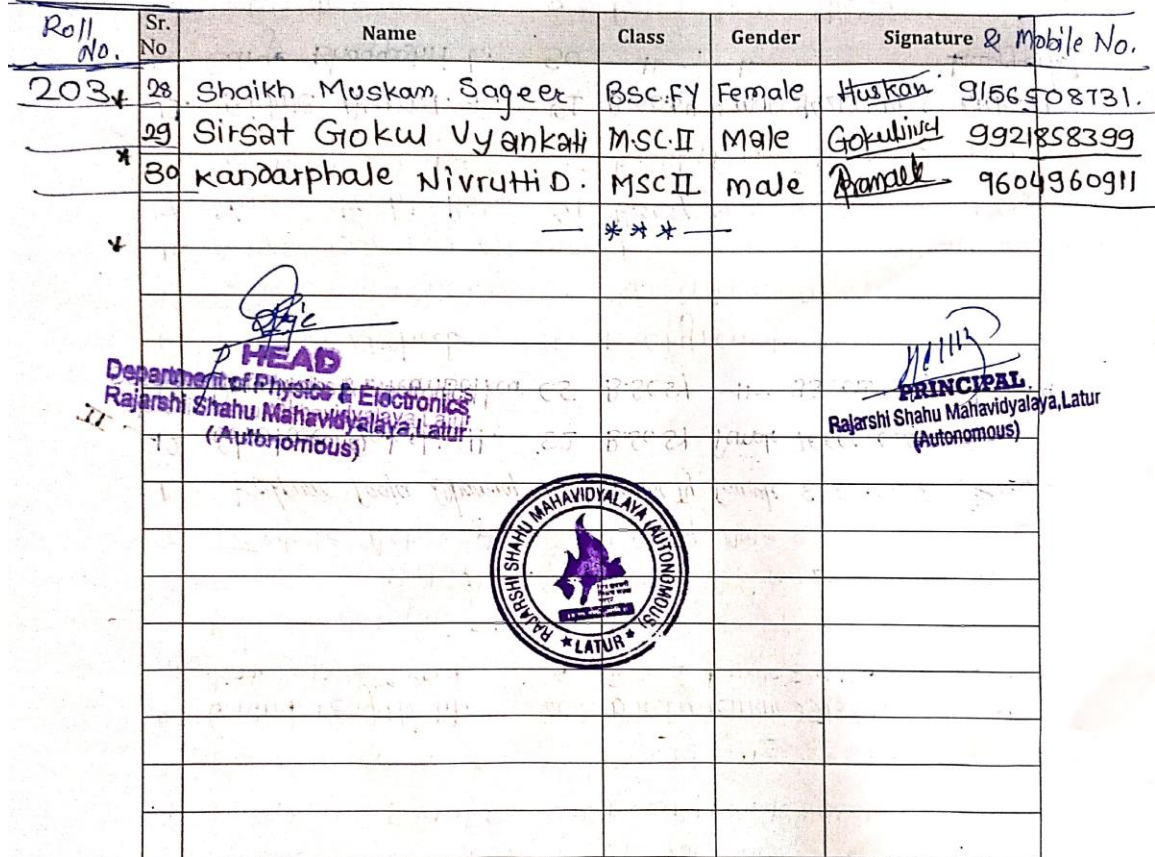 Roll No. Sr. No Name Class Gender Signature & Mobile No.
203 28 Shaikh Muskan Sageer BSC.FY Female Huskan 9156508731.
29 Sirsat Gokul Vyankati M.SC.II Male 9921858399
30 Kandarphale Nivrutti D. MSC II male 9604960911
— *** —
HEAD
Department of Physics & Electronics
Rajarshi Shahu Mahavidyalaya, Latur
(Autonomous)
PRINCIPAL
Rajarshi Shahu Mahavidyalaya, Latur
(Autonomous)
II
RAJARSHI SHAHU MAHAVIDYALAYA (AUTONOMOUS)
* LATUR *